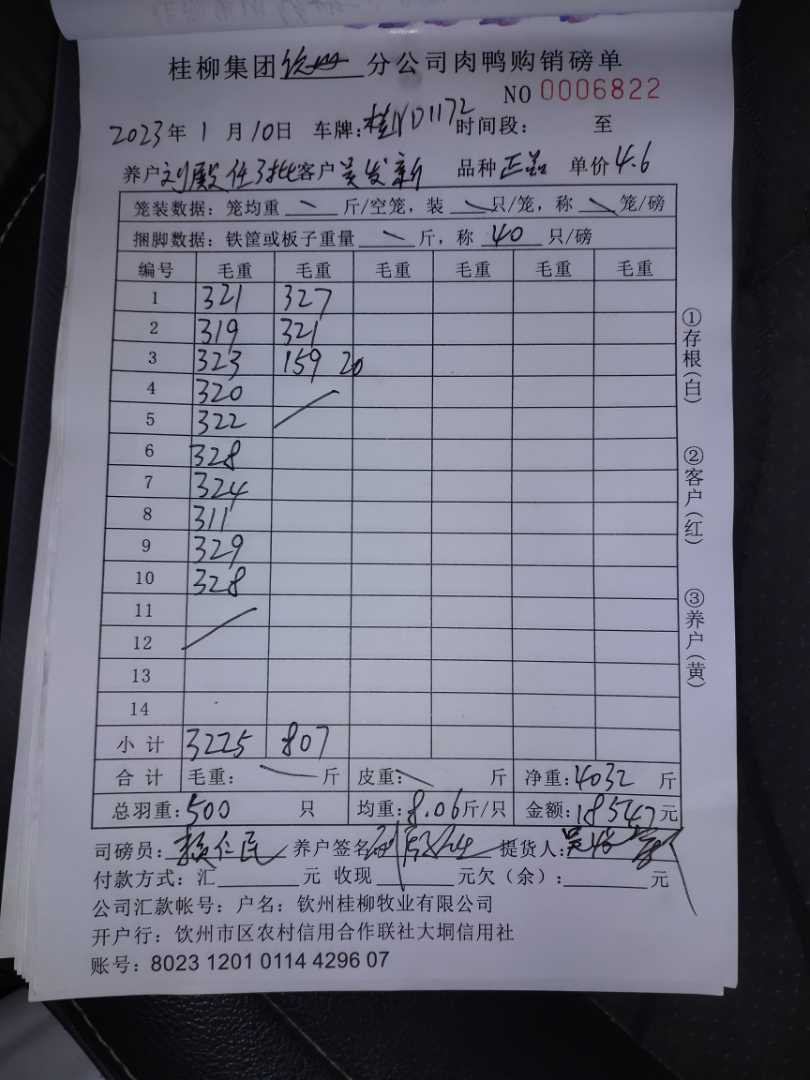 桂柳集团钦州分公司肉鸭购销磅单
NO 0006822
2023年1月10日 车牌:桂ND1172 时间段: 至
养户刘殿任3批客户吴发新 品种正品 单价4.6
笼装数据:笼均重 斤/空笼,装 只/笼,称 笼/磅
捆脚数据:铁筐或板子重量 斤,称 40 只/磅
编号 毛重 毛重 毛重 毛重 毛重 毛重
1 321 327
2 319 321
3 323 159 20
4 320
5 322
6 328
7 324
8 311
9 329
10 328
11
12
13
14
小计 3225 807
合计 毛重: 斤 皮重: 斤 净重:4032 斤
总羽重:500 只 均重:8.06斤/只 金额:18547元
司磅员:赖仁民 养户签名 提货人:吴发新
付款方式:汇 元 收现 元欠(余): 元
公司汇款帐号:户名:钦州桂柳牧业有限公司
开户行:饮州市区农村信用合作联社大垌信用社
账号:8023 1201 0114 4296 07
①存根(白)
②客户(红)
③养户(黄)